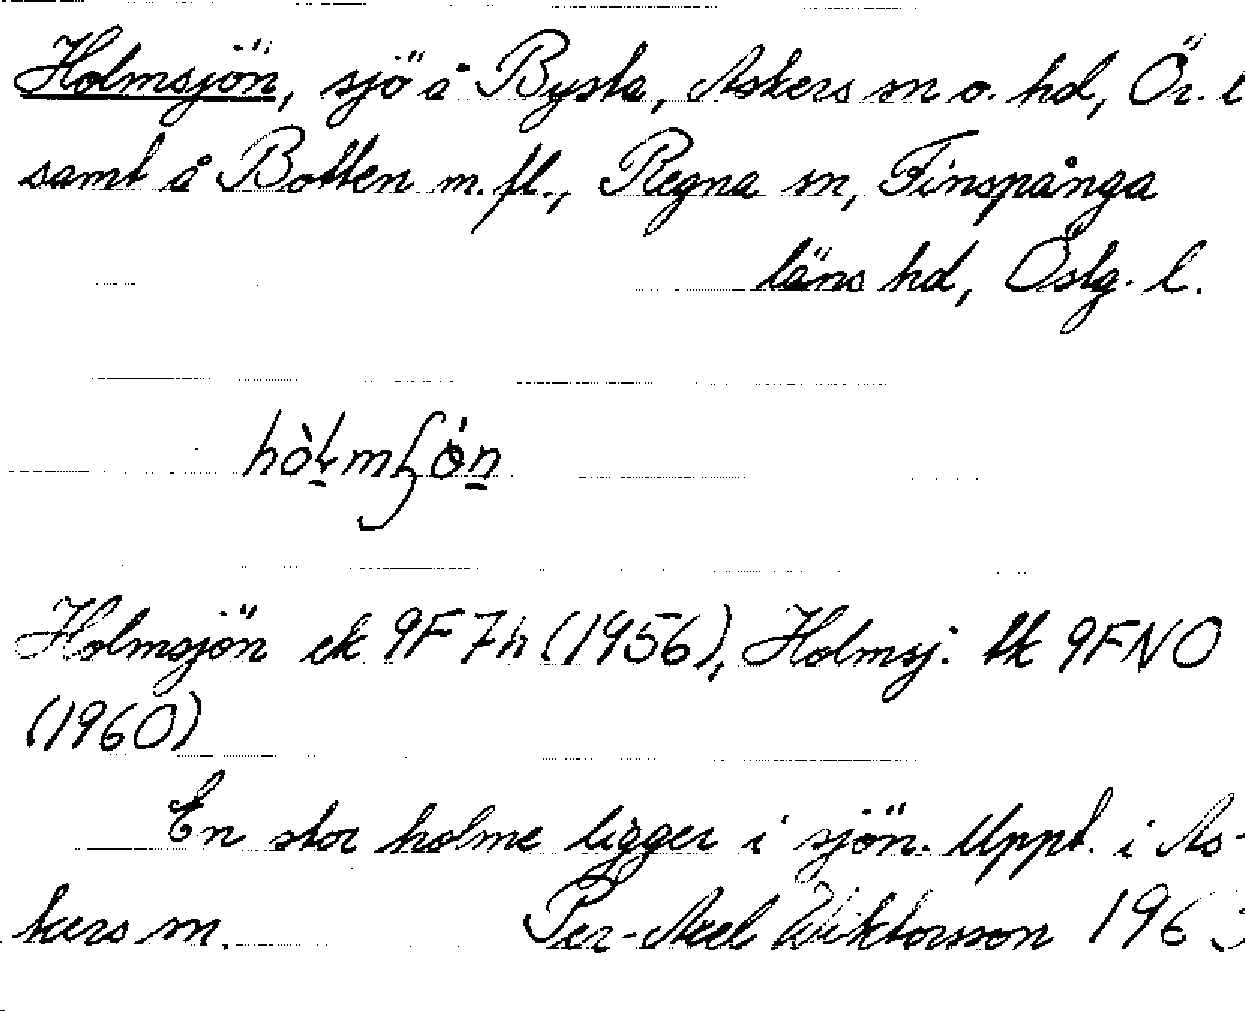 Holmsjön, sjö å Bysta, Askers sn o. hd, Ör. l
samt å Botten m.fl., Regna sn, Finspånga
läns hd, Östg. l.
Holmsjön ek 9F 7h (1956), Holmsj. tk 9FNO
(1960)
En stor holme ligger i sjön. Uppt. i As-
kers sn. Per-Axel Wiktorsson 196